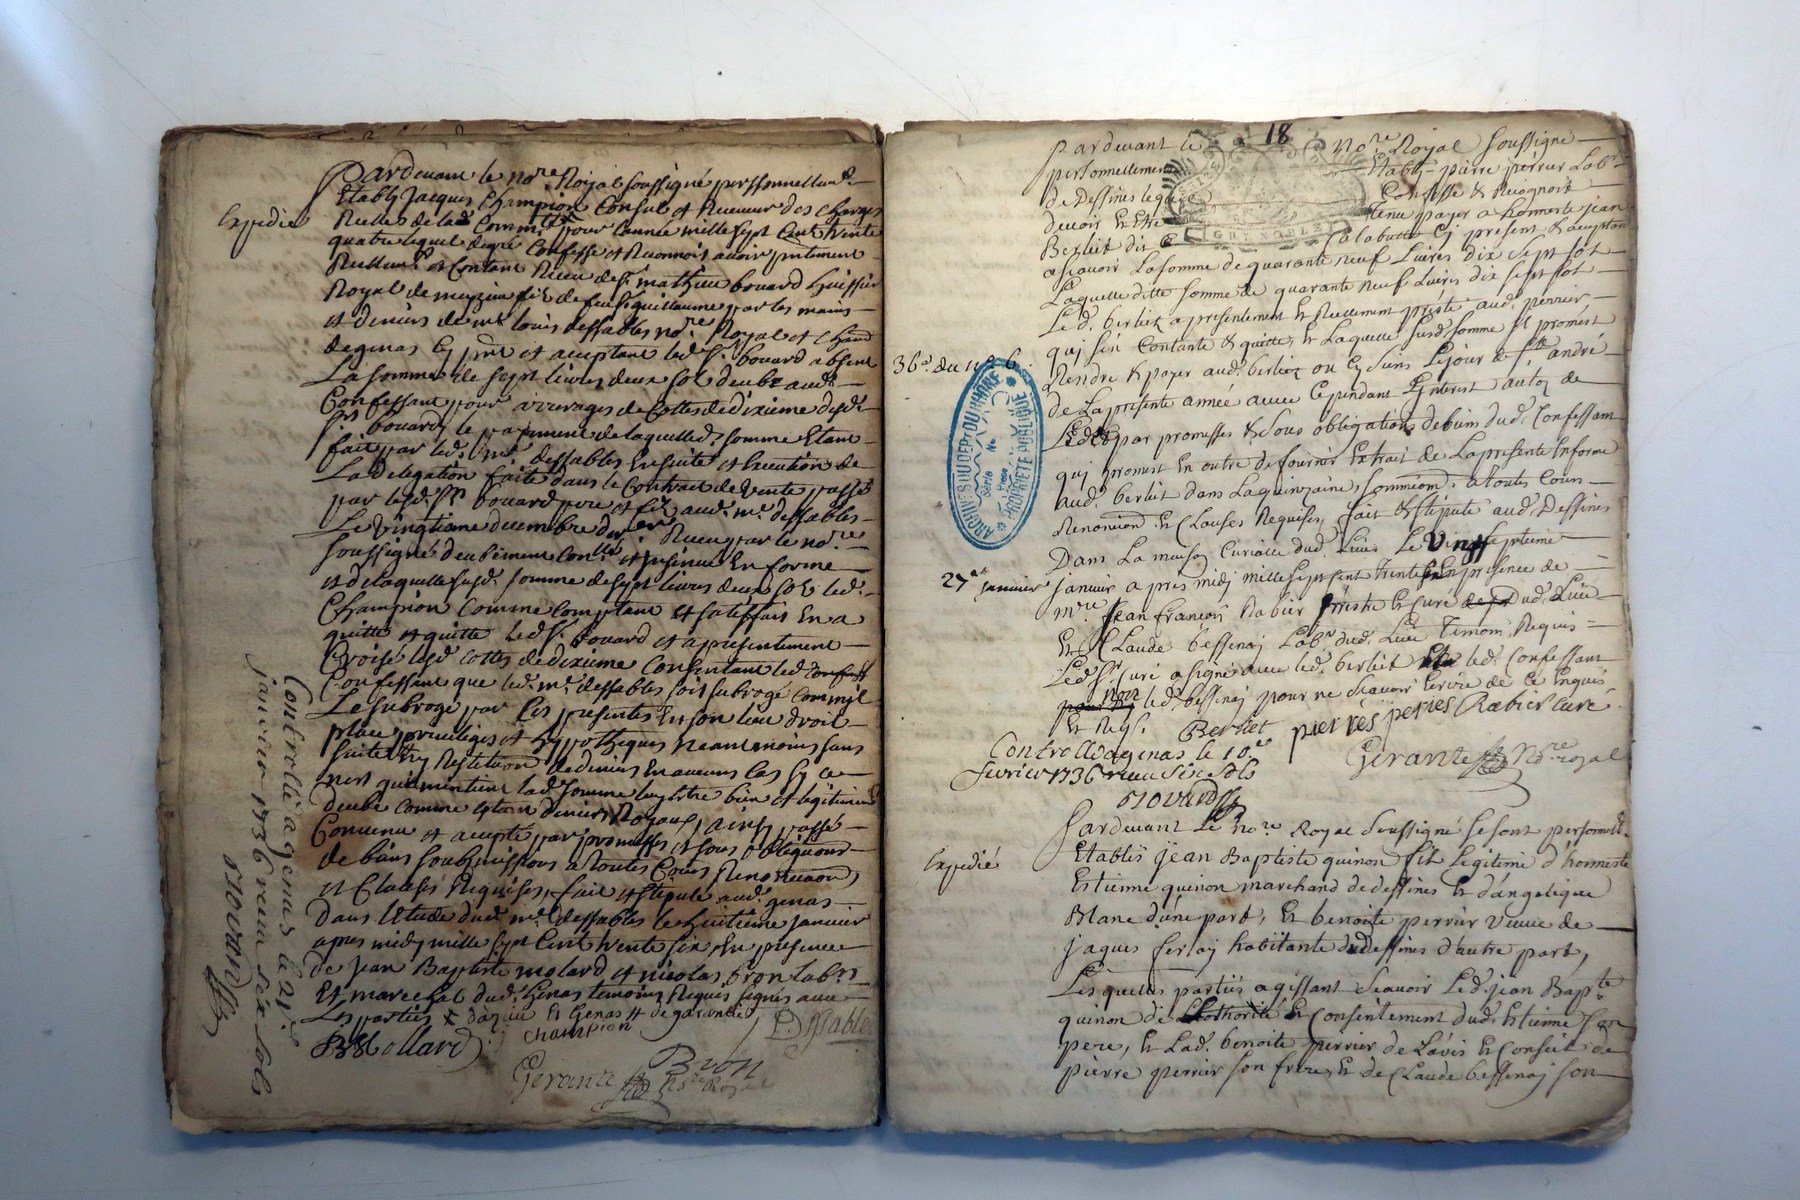 Pardevant le no.re Royal soussigné personnellem.t
Etably Jacques Champion Consul et Receveur des charges
Expedié
Rielles de lad. Commté pour l'année mille sept cent trente
quatre lequel degre confesse et Reconnoit avoir pntement
Reellem.t et Contant Receu de Sr. mathieu bouard huissier
Royal de meyzieu fils de feu Sr. guillaume par les mains
et deniers de me. louis dessables no.re Royal et Chand
degenas Cy pnt et aceptant led. Sr. bouard absent
La somme de sept livres deux sol deube aud.
Confessant pour arrerages de Cottes de dixieme desd.
Srs bouard, le payement de laquelled. somme Etant
fait par led. me. dessables En suite et Execution de
La delegation faite dans le Contrat de Vente passé
par lesd. Srs bouard pere et fils aud. me. dessables
Le vingtieme decembre der.er Receu par le no.re
soussigné deubement Conllé et insinué En forme
et de laquelle susd. somme de sept livres deux sol led.
Champion Comme Comptant et satisfait En a
quitté et quitte led. Sr. bouard et a presentement
Croisé lesd. cottes de dixieme Consentant led.
Confessant que led. me. dessables soit subrogé Comme il
Le subroge par Ces presentes En son lieu droit
place privileges et hypotheques neantmoins sans
suitte ny Restitution de deniers En aucuns Cas sy ce
nest que maintenir lad. somme luy etre bien et legitimement
deube comme Estan deniers Royaux, ainsy passé
Convenu et accepté par promesses et sous obligaons
de biens soubzmissions a toutes Cours Renontiaons
et Clauses Requises, fait et stipulé aud. genas
Dans l'Etude dud. me. dessables le huitieme Janvier
apres midy mille sept Cent trente six, En presence
de Jean Baptiste molard et nicolas bron lab.rs
Et marechal dud. Genas temoins Requis signés avec
Les parties
B Mollard
champion
Dessables
Bron
Gerante No.re Royal
Controllé a genas le 21.e
janvier 1736 receu six sols
18
Pardevant le No.re Royal soussigné
personnellement Etably pierre perrier Lab.r
de Dessines lequel Confesse & Recognoit
devoir Et Etre tenu payer a honneste jean
GRENOBLE
Berliet dit Calabutte Cy present & acceptant
ascavoir La somme de quarante neuf Livres dix sept sol
Laquelle ditte somme de quarante neuf Livres dix sept sol
Led. berliet a presentement Et Reellement presté aud. perrier
36.e du
quj s'en Contante & quitte, Et Laquelle susd. somme Il promest
Rendre & payer aud. berliet ou Es siens Le jour de fte st andré
de La presente année avec Cependant L'Interest au tos de
ARCHIVES DU DEPT DU RHONE
Série No Pièce
PROPRIETE PUBLIQUE
L'Edit par promesses & sous obligations de biens dud. Confessant
quj promest En outre de fournir Extrait de La presente Enforme
aud. berliet dans La quinzaine, sommeon. a toutes Cours
Renonciaon Et Clauses Requises, fait & stipulé aud. Dessines
Dans La maison Curialle dud. Lieu Le vingt septieme
27.e janvier
janvier apres midj mille sept cent trente six En presence de
mre. Jean francois Rabier prestre Et Curé dud. Lieu
Et Claude bessenaj Lab.r dud. Lieu temoins Requis
Led. Sr. Curé a signé avec led. berliet Et led. Confessant
non led. bessenaj pour ne scavoir Ecrire de Ce Enquis
Et Reqs.
Berliet pierres peries Rabier Curé
Controllé a genas le 10.e
fevrier 1736 receu six sols
Gerante No.re royal
Pardevant Le No.re Royal soussigné se sont personnell.t
Expedié
Etablis jean Baptiste quinon fils legitime d'honneste
Estienne quinon marchand de dessines Et d'angelique
Blanc d'une part, Et benoite perrier veuve de
jaques ferlaj habitante dud dessines d'autre part,
Lesquelles parties agissant scavoir Led. jean Bap.te
quinon de L'authorité & Consentement dud. Estienne son
pere, Et Lad. benoite perrier de L'avis Et Conseil de
pierre perrier son frere, Et de Claude bessenaj son